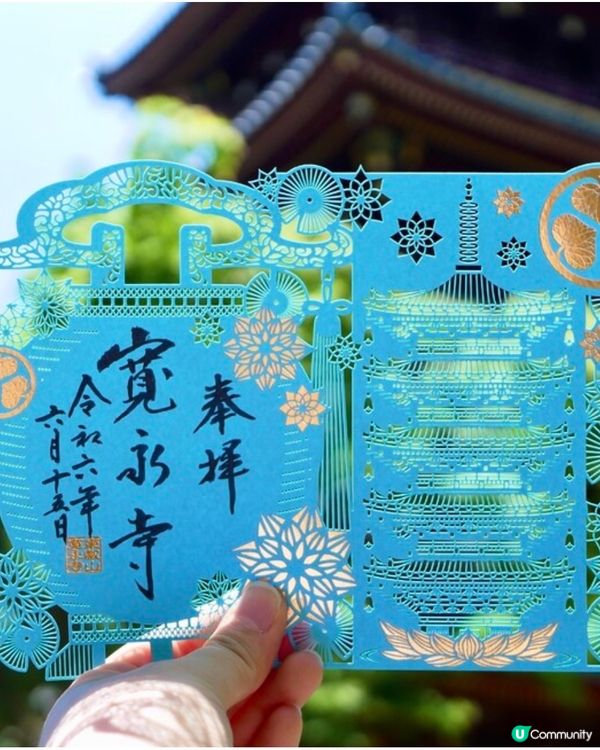 奉拝
寛永寺
令和六年
六月十五日
東叡山
寛永寺
U Community